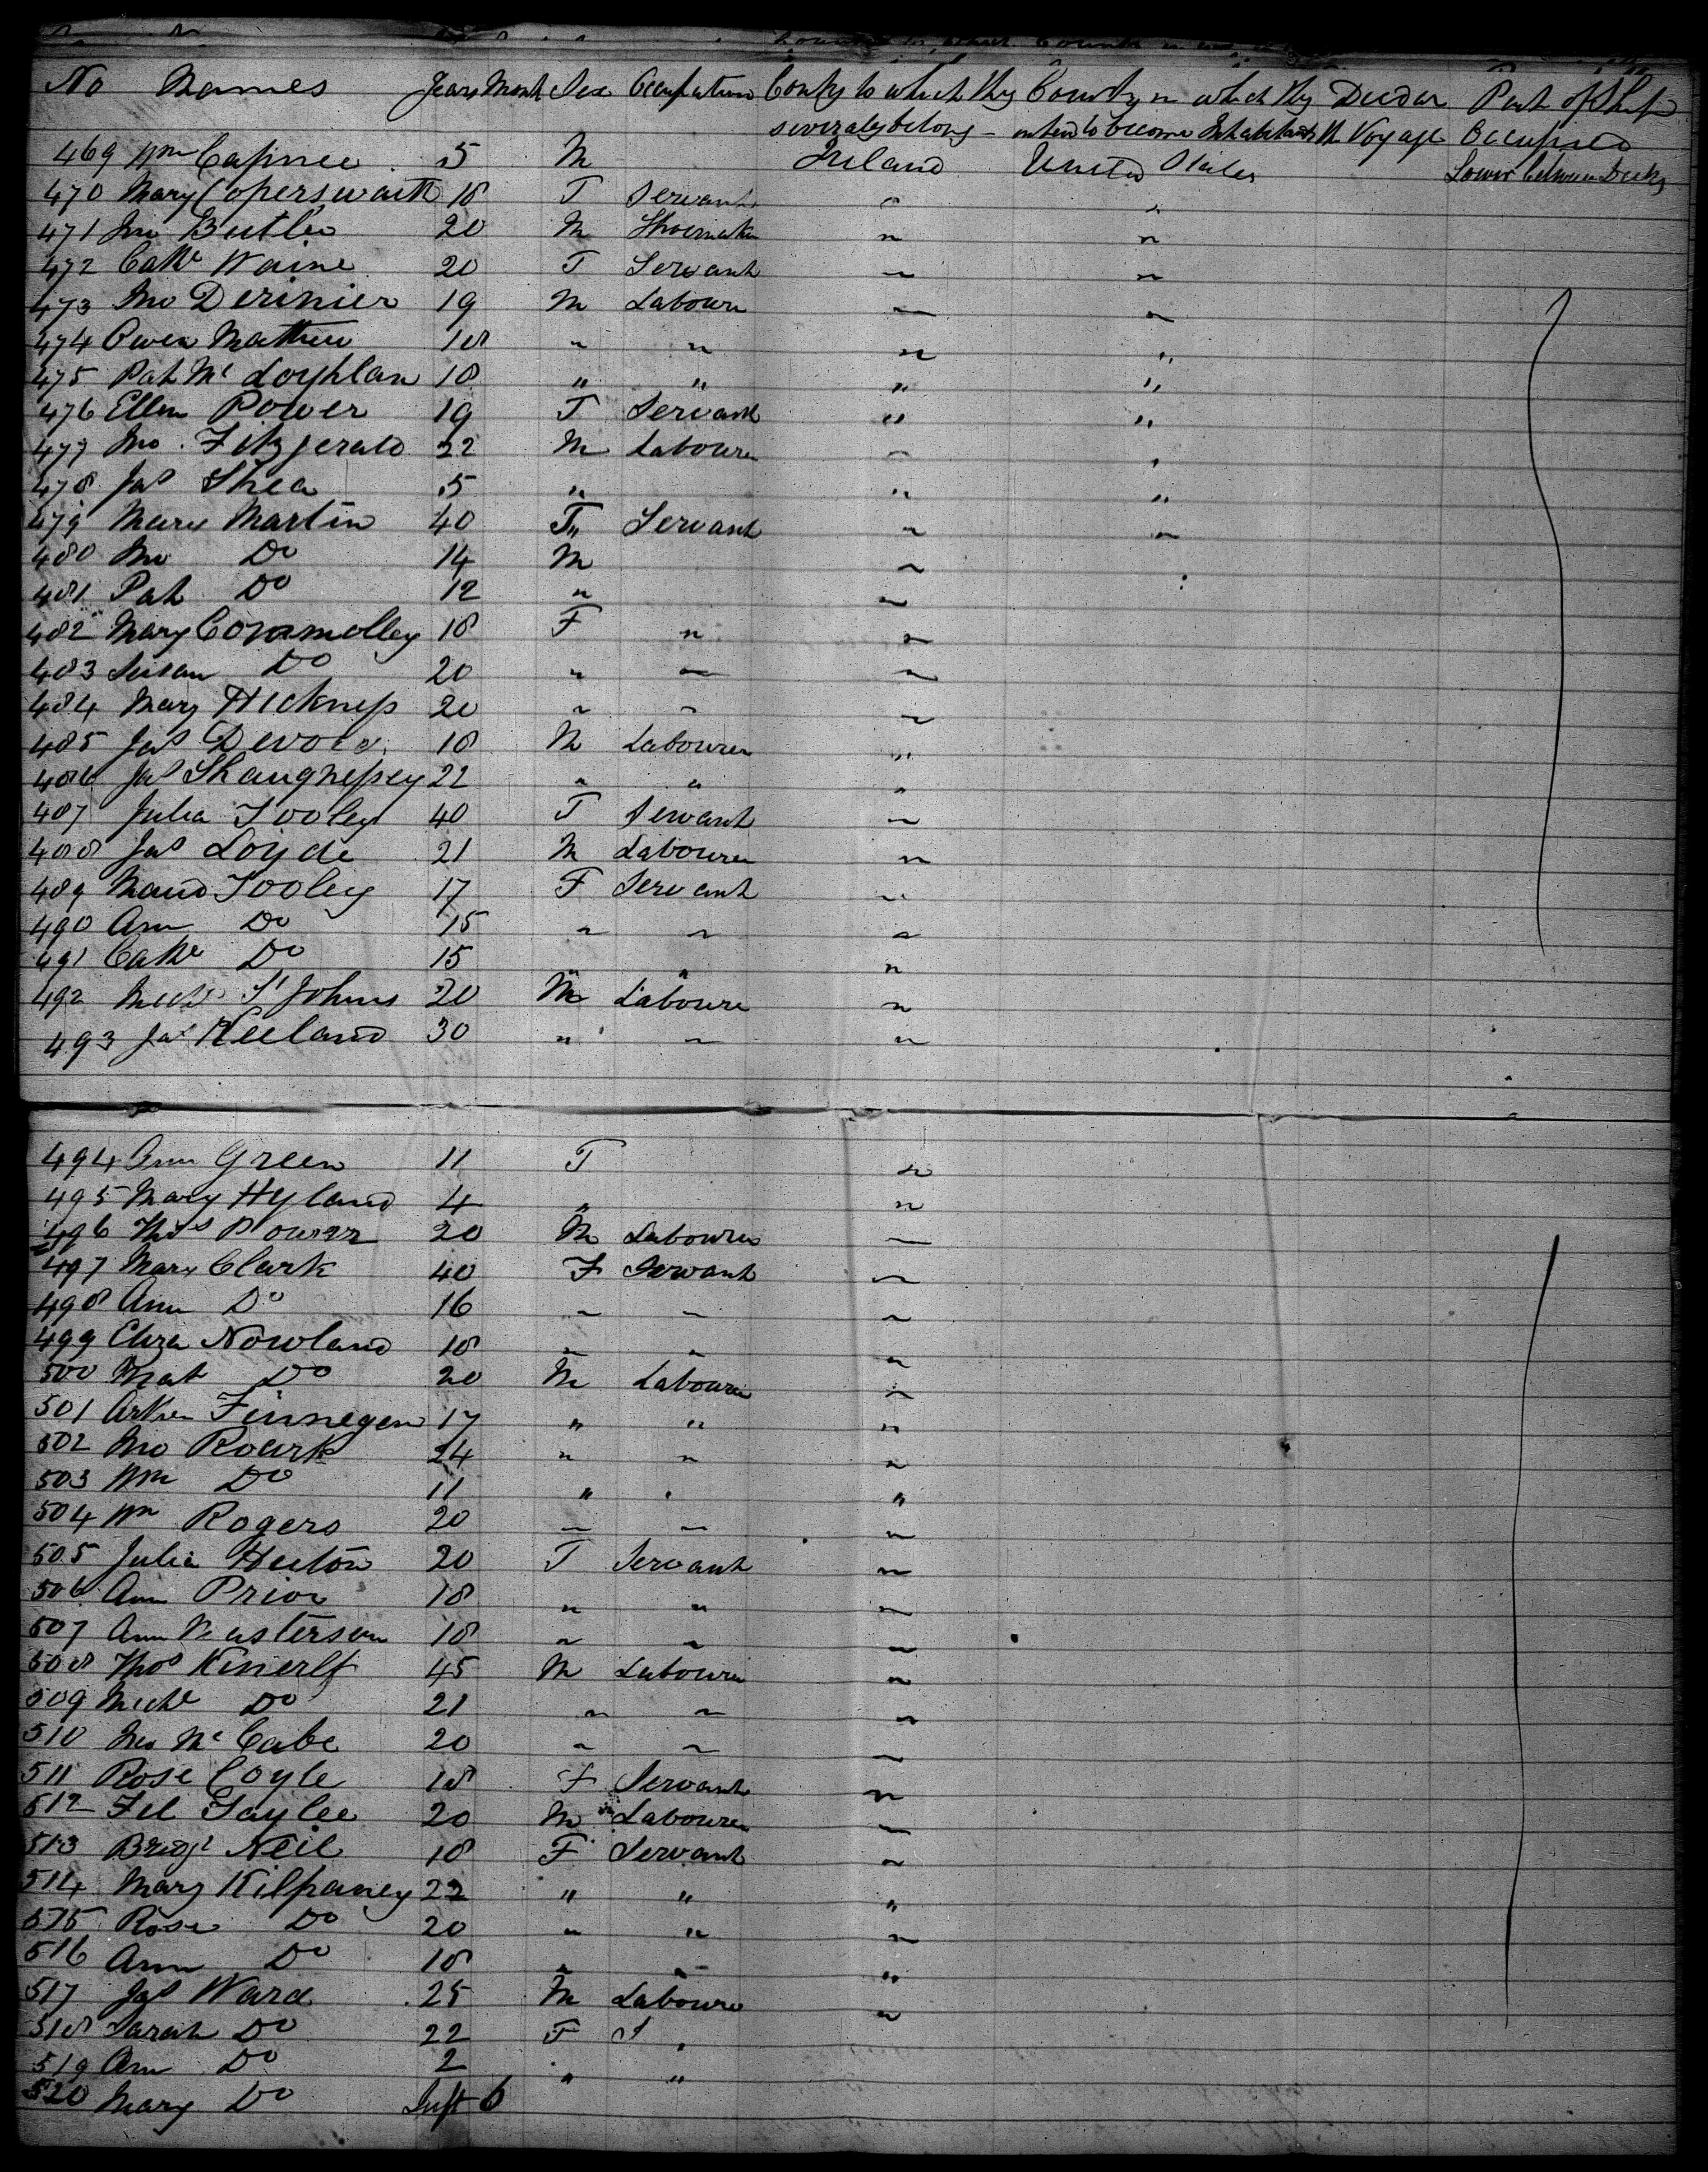 No Names Years Month Sex Occupation Contry to which they Country in which they Died on Part of Ship
severaly belong - intend to become Inhabitants the Voyage Occupied
469 Wm Capnee 5 M Ireland United States Lower between Decks
470 Mary Coperswaith 18 F Servant " "
471 Jno Butler 20 M Shoemaker " "
472 Cathe Waine 20 F Servant " "
473 Jno Derinier 19 M Laboure " "
474 Owen Mathew 18 " " " "
475 Pat Mc Loyhlan 18 " " " "
476 Ellen Power 19 F Servant " "
477 Jno Fitzgerald 22 M Labourer " "
478 Jas Shea 5 " " "
479 Mary Martin 40 F Servant " "
480 Jno Do 14 M "
481 Pat Do 12 " "
482 Mary Connolley 18 F " "
483 Susan Do 20 " " "
484 Mary Hickness 20 " " "
485 Jas 18 M Labourer "
486 Jas Shaughnessey 22 " " "
487 Julia Tooley 40 F Servant "
488 Jas Loyde 21 M Labourer "
489 Tooley 17 F Servant "
490 Ann Do 15 " " "
491 Cathe Do 15 " " "
492 St Johns 20 M Laboure "
493 Jas Keeland 30 " " "
494 Ann Green 11 F "
495 Mary Hyland 4 " "
496 Thos Power 20 M Labourer "
497 Mary Clark 40 F Servant "
498 Ann Do 16 " " "
499 Eliza Nowland 18 " " "
500 Mat Do 20 M Labourer "
501 Finnegan 17 " " "
502 Jno Roark 24 " " "
503 Wm Do 11 " " "
504 Wm Rogers 20 " " "
505 Julia Heeton 20 F Servant "
506 Ann Prior 18 " " "
507 Ann Masterson 18 " " "
508 Thos Kinerlt 45 M Labourer "
509 Miche Do 21 " " "
510 Jno Mc Cabe 20 " " "
511 Rose Coyle 18 F Servant "
512 Fel Taylee 20 M Labourer "
513 Bridgt Neil 18 F Servant "
514 Mary Kilpaney 22 " " "
515 Rose Do 20 " " "
516 Ann Do 18 " " "
517 Jas Ward 25 M Laboure "
518 Sarah Do 22 F S "
519 Ann Do 2 " "
520 Mary Do Inft 6